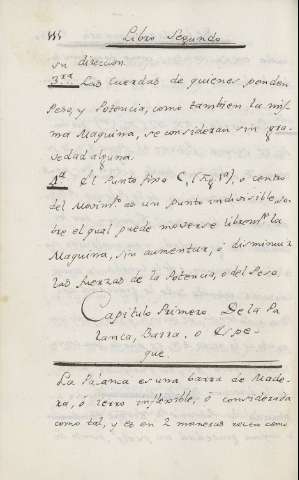 Libro Segundo
su direccion.
3.ra Las Cuerdas de quienes penden
Peso, y Potencia, como tambien la mis-
ma Maquina, se consideran sin gra-
vedad alguna.
4.a El Punto fixo C, (fig. 1ª) o centro
del Movim.to es un punto indivisible, so-
bre el qual puede moverse librem.te la
Maquina, sin aumentar, ó disminuir
las fuerzas de la Potencia, o del Peso.
Capitulo Primero De la Pa-
lanca, Barra, o Espe-
que.
La Palanca es una barra de Made-
ra, ó ierro inflexible, ó considerada
como tal, y es en 2 maneras recta como